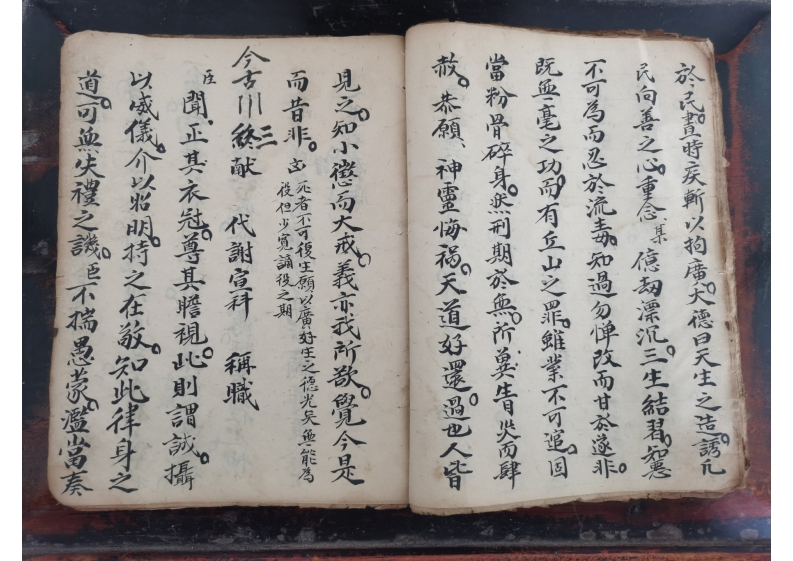 於民。晝時疾斬以拘廣。大德曰天生之造。誘凡
民向善之心。重念某億劫漂沉。三生結習。知惡
不可為而忍於流毒。知過勿憚改而甘於遂非。
既無一毫之功。而有丘山之罪。雖業不可追。固
當粉骨碎身。然刑期於無。所冀眚災而肆
赦。恭願神靈悔禍。天道好還。過也人皆
見之。知小懲而大戒。義亦我所欲。覺今是
而昔非。
死者不可復生願以廣好生之德光矣無能為
役但少寬誦役之期
今古川 終三献 代謝宣科 稱職
臣聞正其衣冠。尊其瞻視。此則謂誠。攝
以威儀。介以昭明。持之在敬。知此律身之
道。可無失禮之譏。臣不揣愚蒙。濫當奏